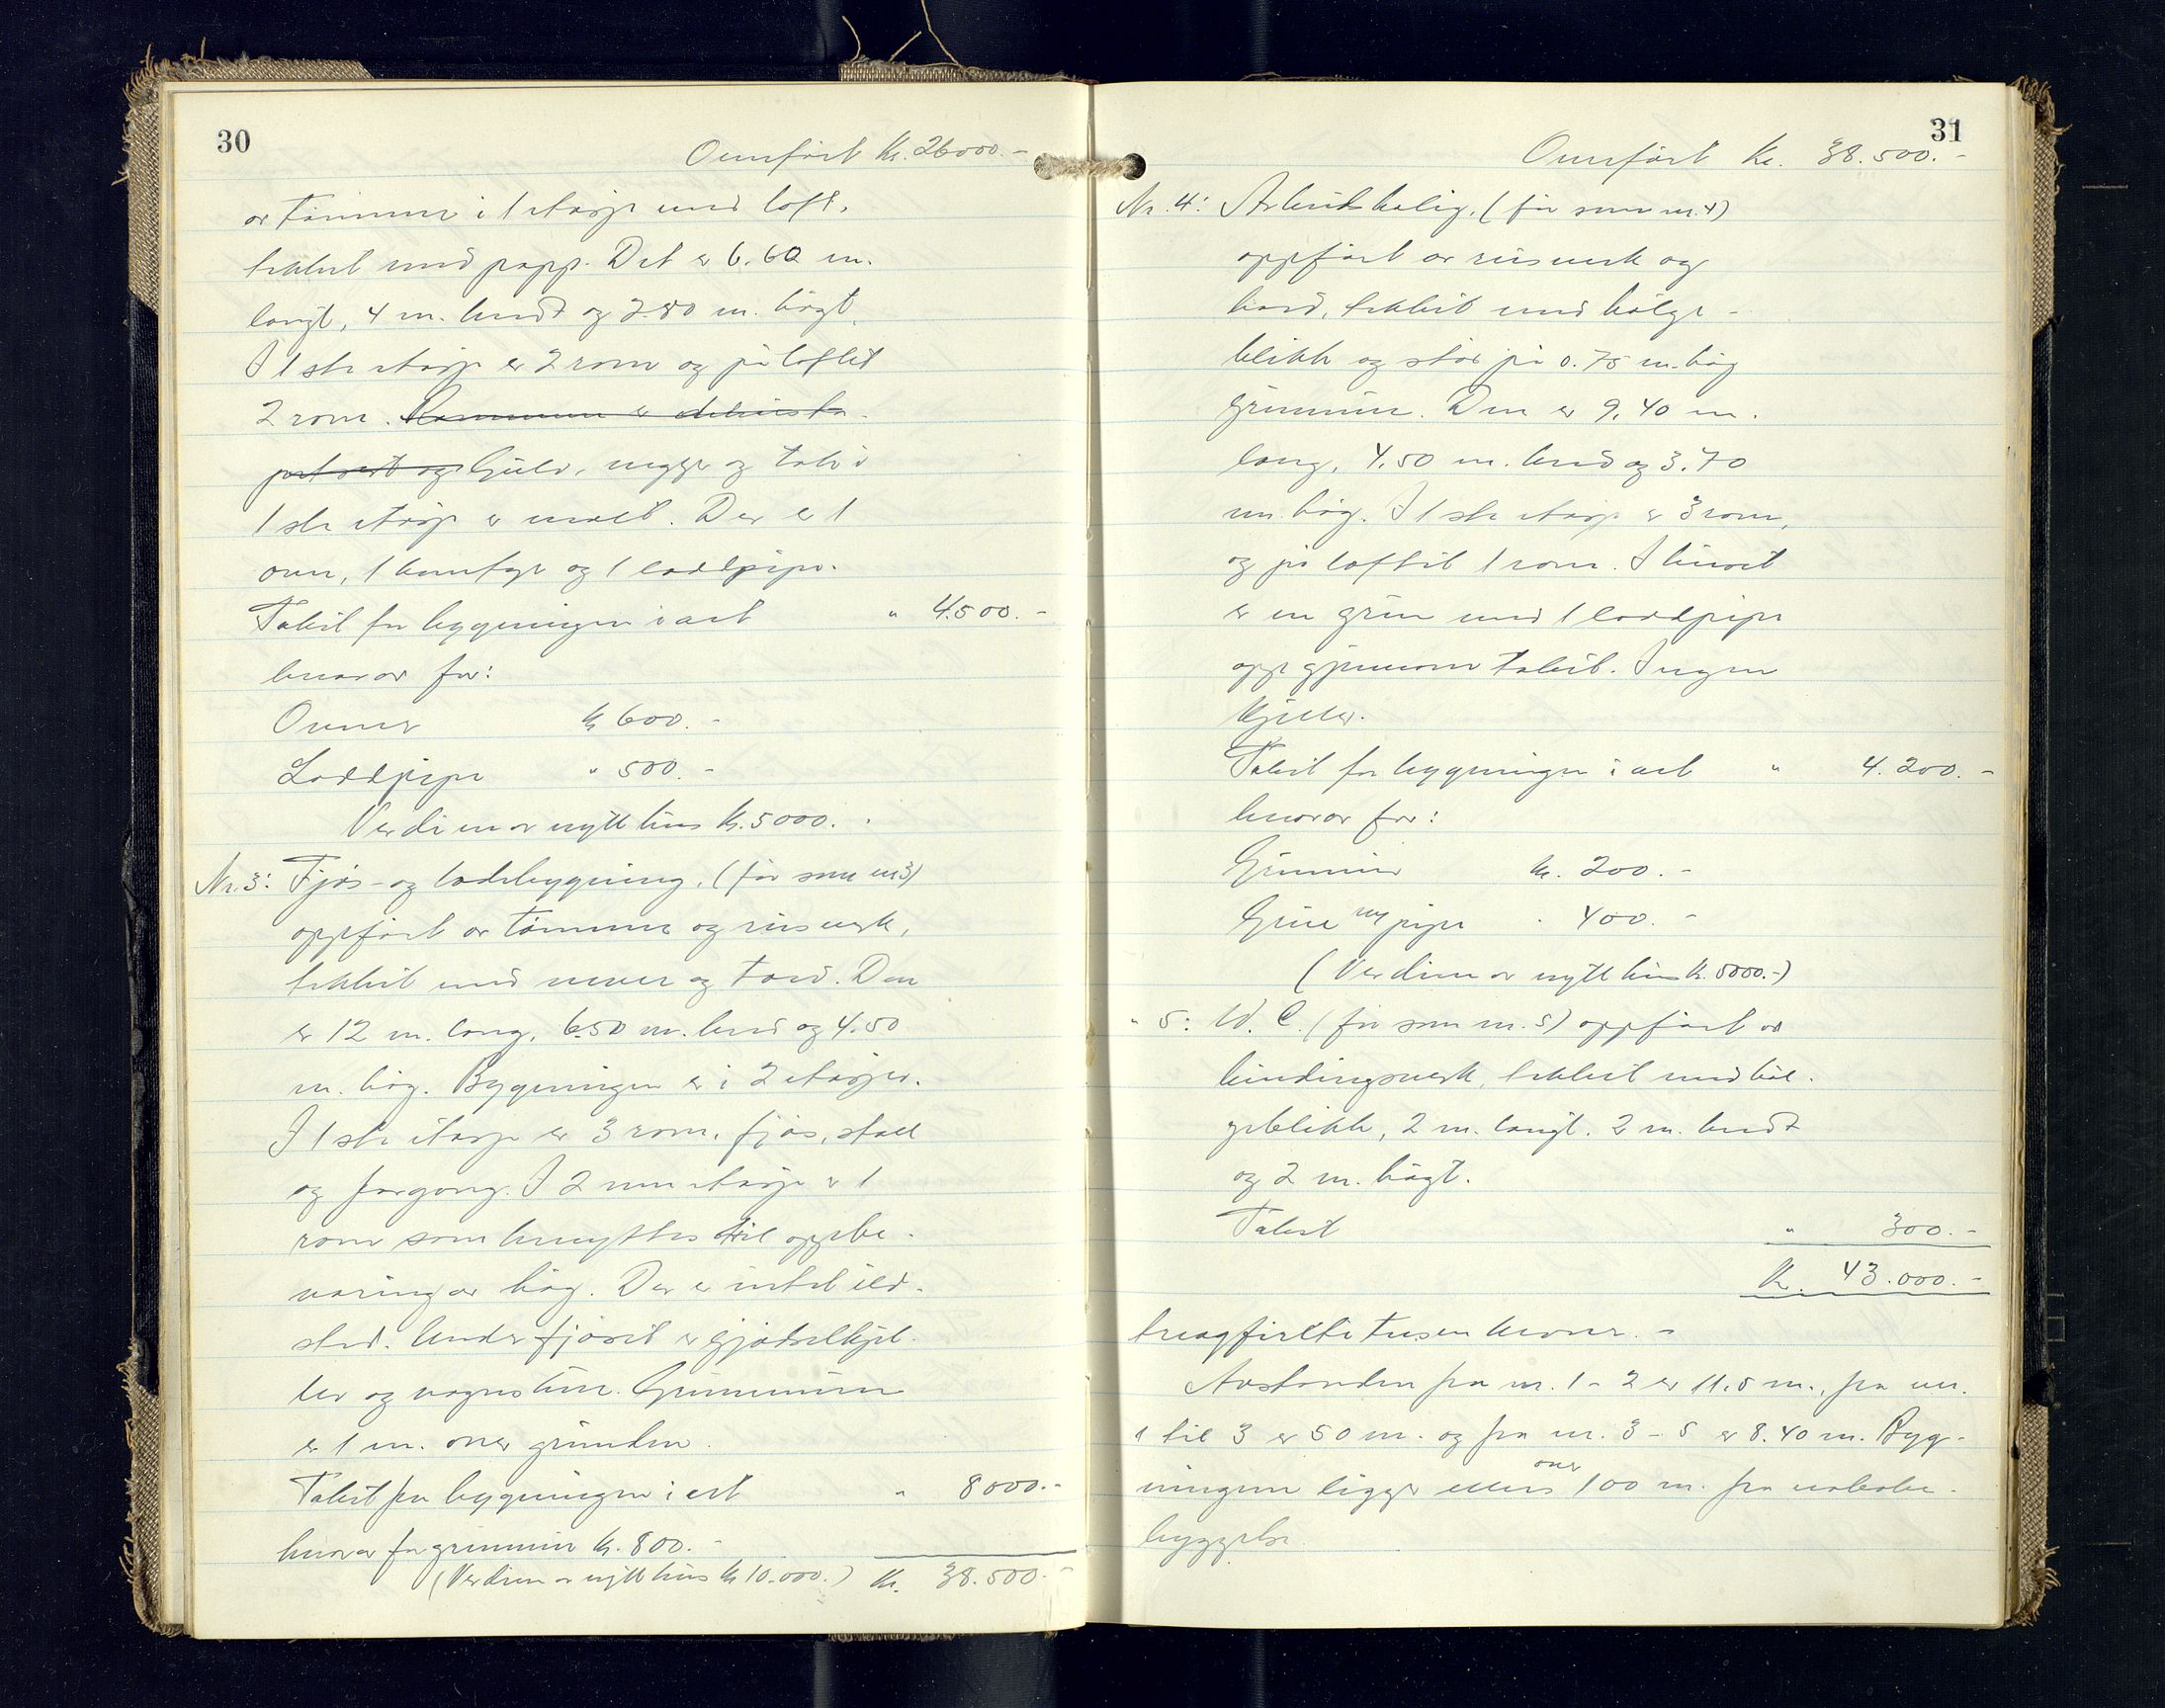 30
Overført Kr. 26000.-
av tømmer i 1 etasje med loft,
tekket med papp. Det er 6.60 m.
langt, 4 m. bredt og 2.80 m. högt.
I 1ste etasje er 2 rom og på loftet
2 rom. Rommene er delvis ta-
petsert og Gulv, vegger og tak i
1ste etasje er malt. Der er 1
ovn, 1 komfyr og 1 loddpipe.
Takst for bygningen i alt " 4.500.-
hvorav for:
Ovner kr 600.-
Loddpipe " 500.-
Verdien av nytt hus kr. 5000.-
Nr. 3: Fjös- og ladebygning, (för som nr 3)
oppfört av tömmer og reisverk,
tekket med never og torv. Den
er 12 m. lang, 6.50 m. bred og 4.50
m. hög. Bygningen er i 2 etasjer.
I 1ste etasje er 3 rom, fjös, stall
og forgang. I 2nen etasje er 1
rom som benyttes til oppbe-
varing av höy. Der er intet ild-
sted. Under fjöset er gjödselkjel-
ler og vognskur. Grunnmuren
er 1 m. over grunden.
Takst for bygningen i alt " 8000.-
hvorav for grunnmur kr. 800.-
(Verdien av nytt hus kr 10.000.) Kr. 38.500.-
31
Overført Kr. 38.500.-
Nr. 4: Arbeidsbolig, (för som nr. 4)
oppfört av reisverk og
bord, tekket med bölge-
blikk og står på 0.75 m. hög
grunnmur. Den er 9,40 m.
lang, 4.50 m. bred og 3.70
m. hög. I 1ste etasje er 3 rom,
og på loftet 1 rom. I huset
er en grue med 1 loddpipe
opp gjennem taket. Ingen
kjeller.
Takst for bygningen i alt " 4.200.-
hvorav for:
Grunnmur kr. 200.-
Grue og pipe " 400.-
(Verdien av nytt hus kr. 5000.-)
" 5: W.C. (för som nr. 5) oppfört av
bindingsverk, tekket med böl-
geblikk, 2 m. langt, 2 m. bredt
og 2 m. högt.
Takst " 300.-
Kr. 43.000.-
treogførtitusen kroner.-
Avstanden fra nr. 1-2 er 11.5 m., fra nr.
1 til 3 er 50 m. og fra nr. 3-5 er 8.40 m. Byg-
ningene ligger ellers over 100 m. fra nabobe-
byggelse